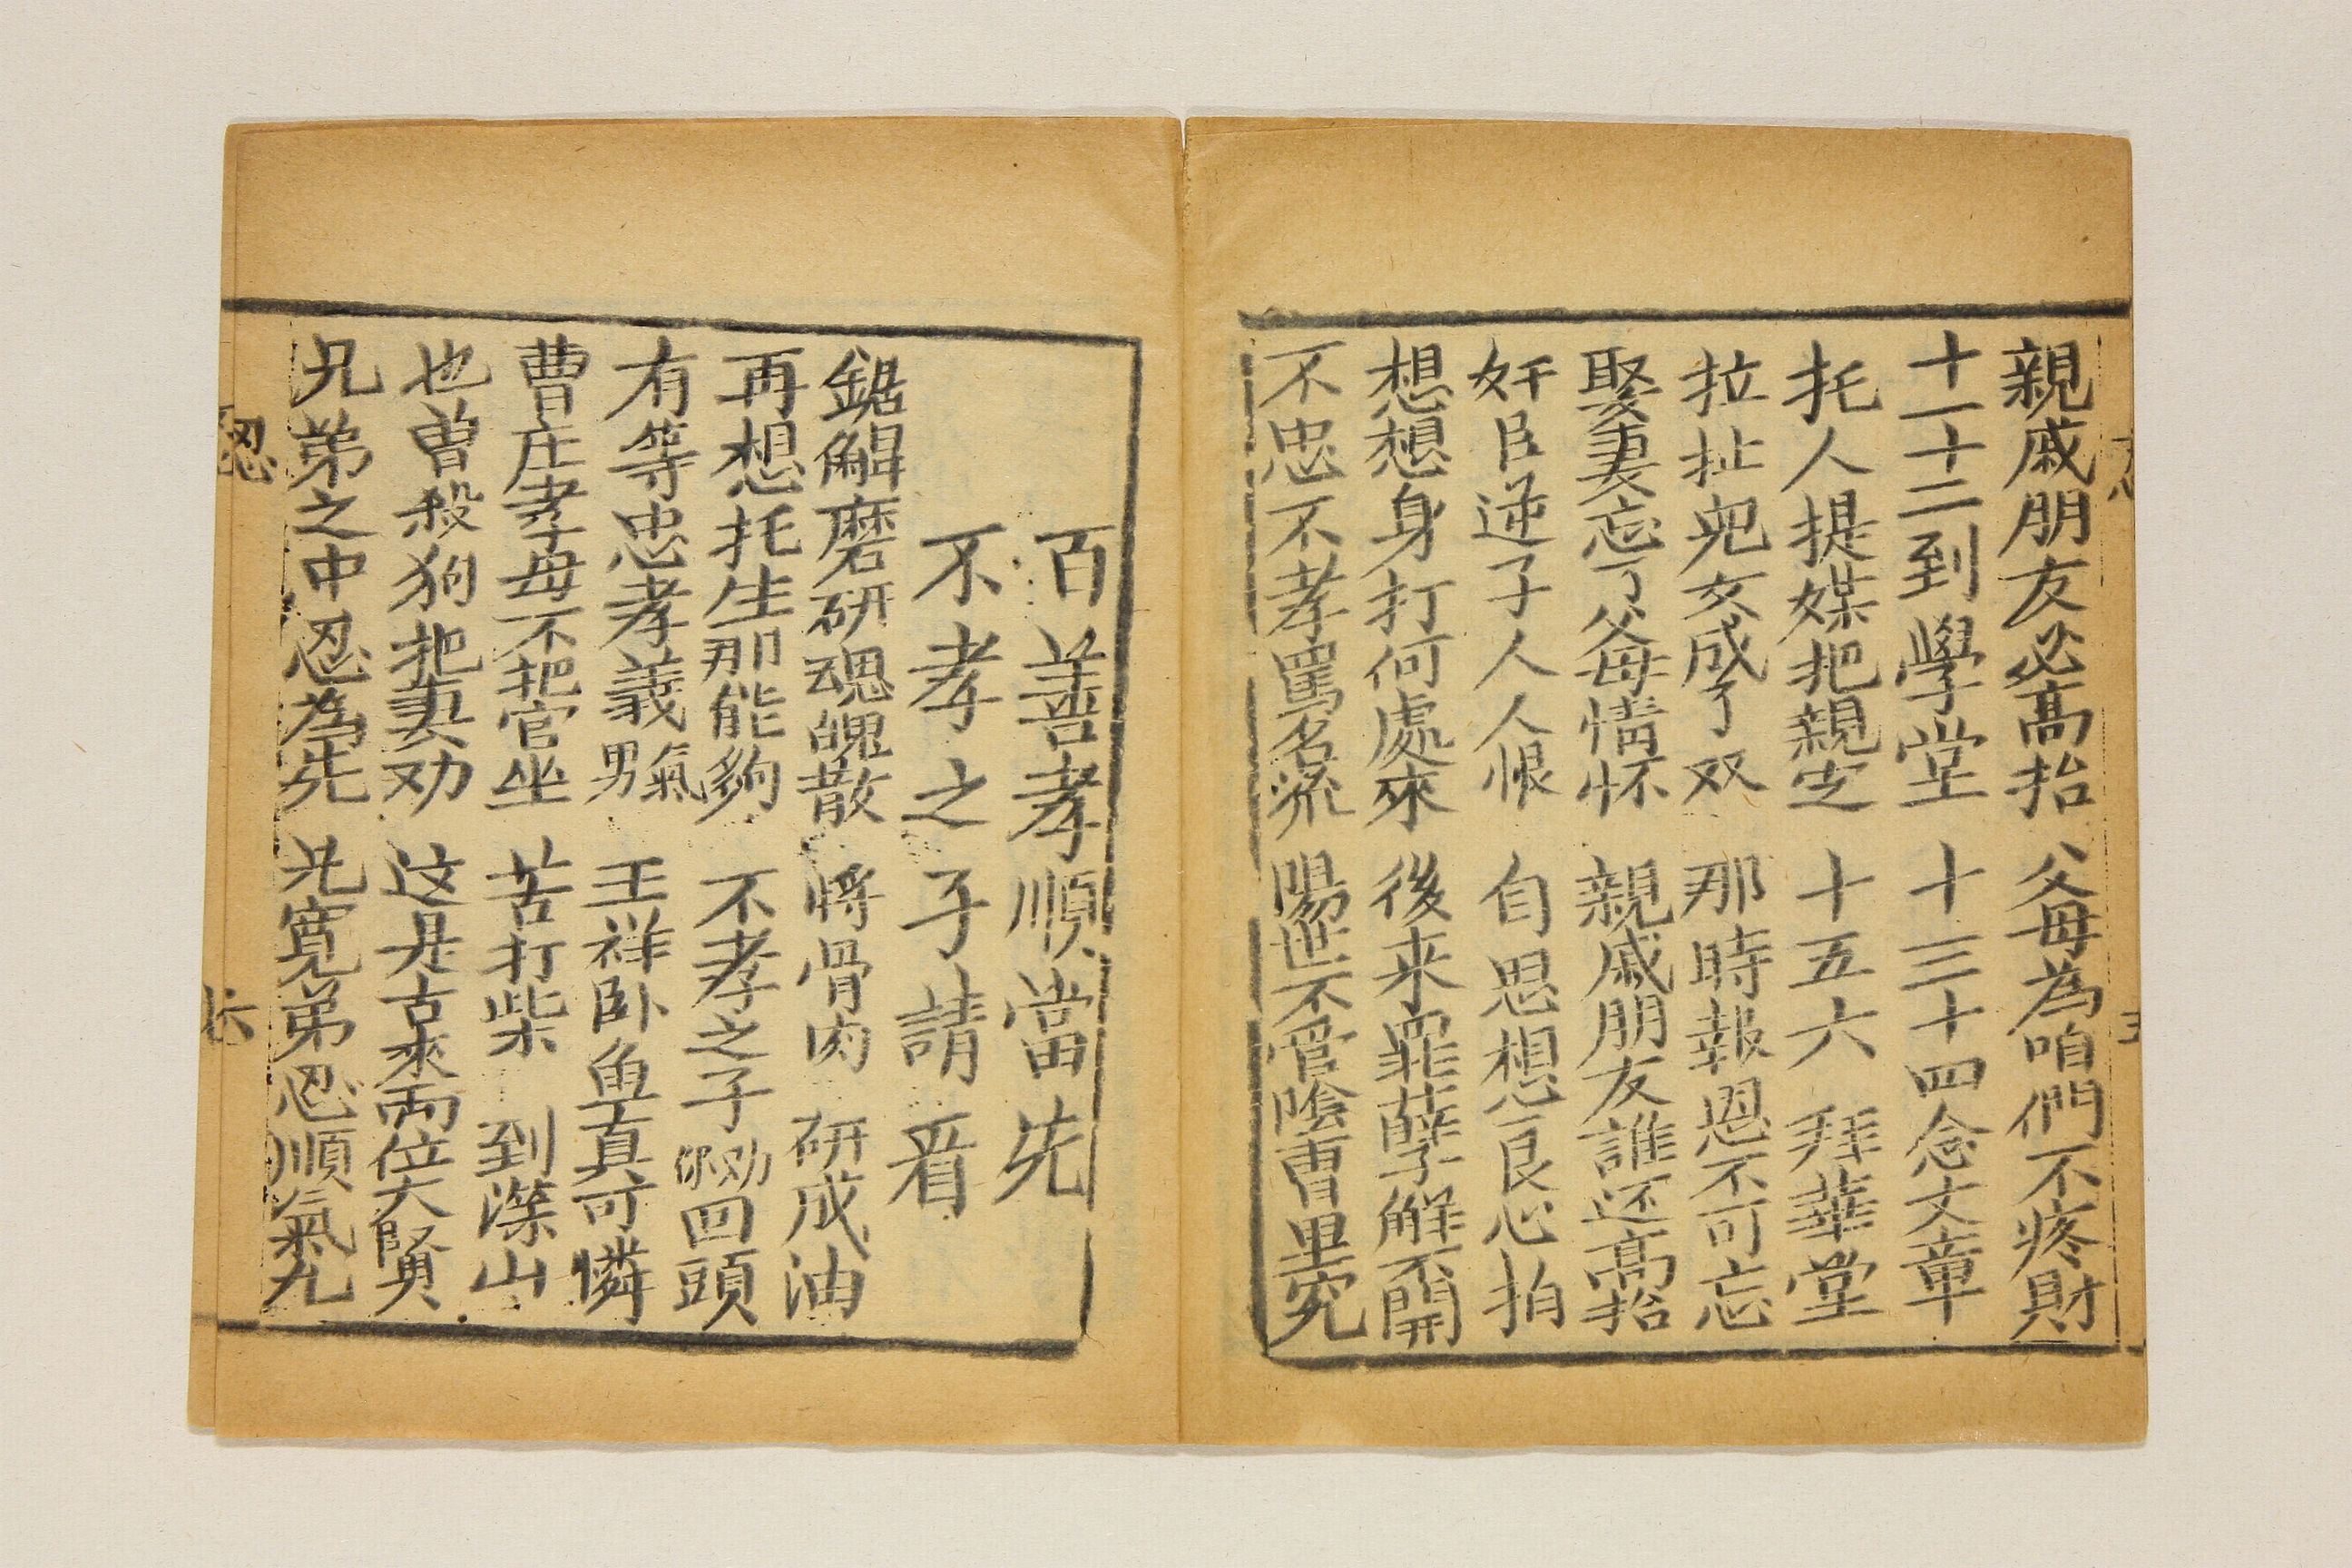 親戚朋友必高抬 父母為咱們不疼財
十一十二到學堂 十三十四念文章
托人提媒把親定 十五六 拜華堂
拉扯兒女成了双 那時報恩不可忘
娶妻忘了父母情怀 親戚朋友誰还高抬
奸臣逆子人人恨 自思想良心拍
想想身打何處來 後来罪孽解不開
不忠不孝罵名流 陽世不管陰曹里究
百善孝順當先
不孝之子請看
鋸觧磨研魂魄散 将骨肉 研成油
再想托生那能夠 不孝之子你劝回頭
有等忠孝義男氣 王祥卧魚真可憐
曹庄孝母不把官坐 苦打柴 到深山
也曽殺狗把妻劝 这是古來両位大賢
兄弟之中忍為先 兄寬弟忍順氣丸
忍
六